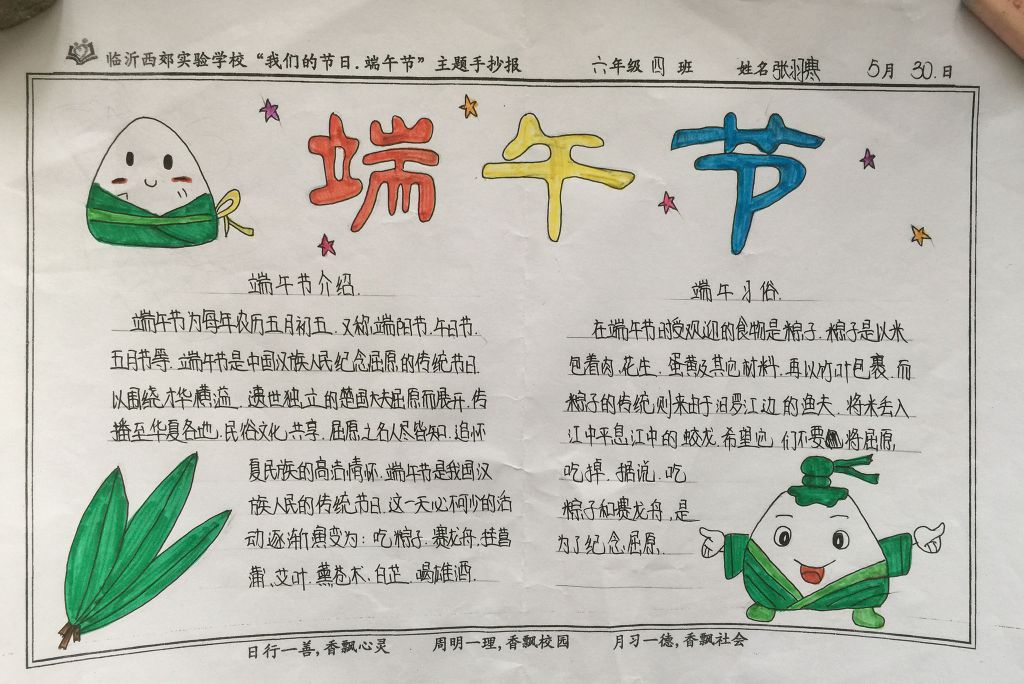 临沂西郊实验学校“我们的节日.端午节”主题手抄报 六年级 四 班 姓名 张羽寒 5月 30.日
端午节
端午节介绍.
端午节为每年农历五月初五.又称端阳节.午日节.
五月节等.端午节是中国汉族人民纪念屈原的传统节日
以围绕才华横溢.遗世独立的楚国大夫屈原而展开.传
播至华夏各地.民俗文化共享.屈原之名人尽皆知.追怀
夏民族的高洁情怀.端午节是我国汉
族人民的传统节日.这一天必不可少的活
动逐渐演变为:吃粽子.赛龙舟.挂菖
蒲、艾叶.薰苍术、白芷.喝雄酒.
端午习俗.
在端午节时受欢迎的食物是粽子.粽子是以米
包着肉.花生.蛋黄及其它材料.再以竹叶包裹.而
粽子的传统则来由于汨罗江边的渔夫.将米丢入
江中平息江中的蛟龙.希望它们不要将屈原
吃掉.据说.吃
粽子和赛龙舟.是
为了纪念屈原.
日行一善,香飘心灵 周明一理,香飘校园 月习一德,香飘社会